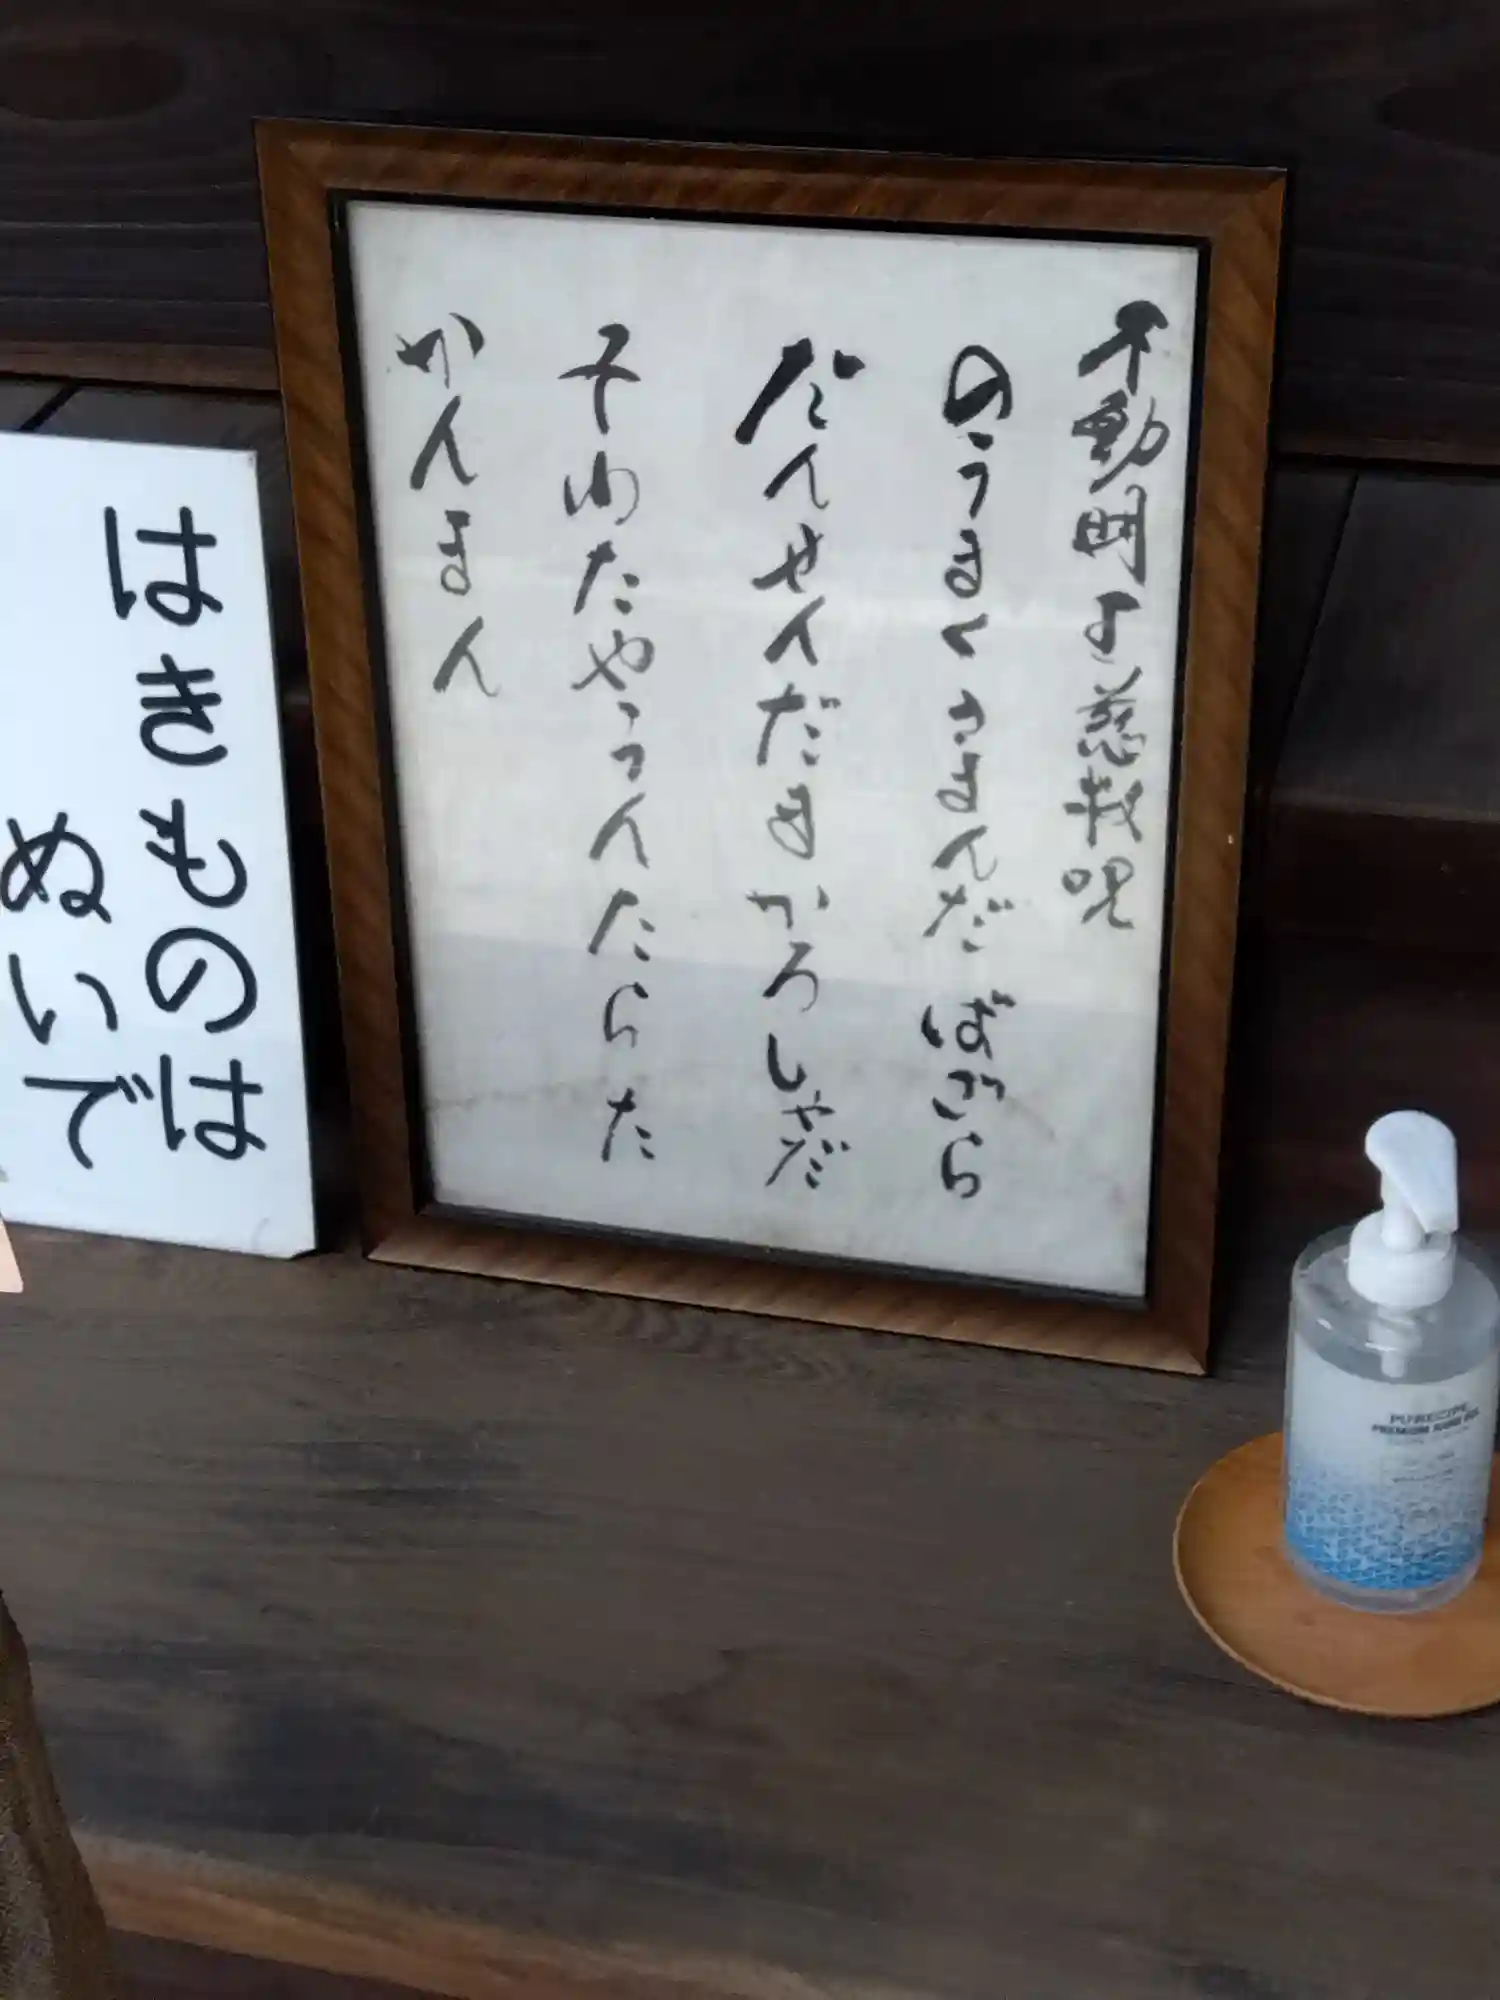 不動明王慈救呪
のうまくさまんだ ばざら
だんせんだまかろしゃだ
そわたやうんたらた
かんまん
はきものは
ぬいで
PREMIUM HAND GEL